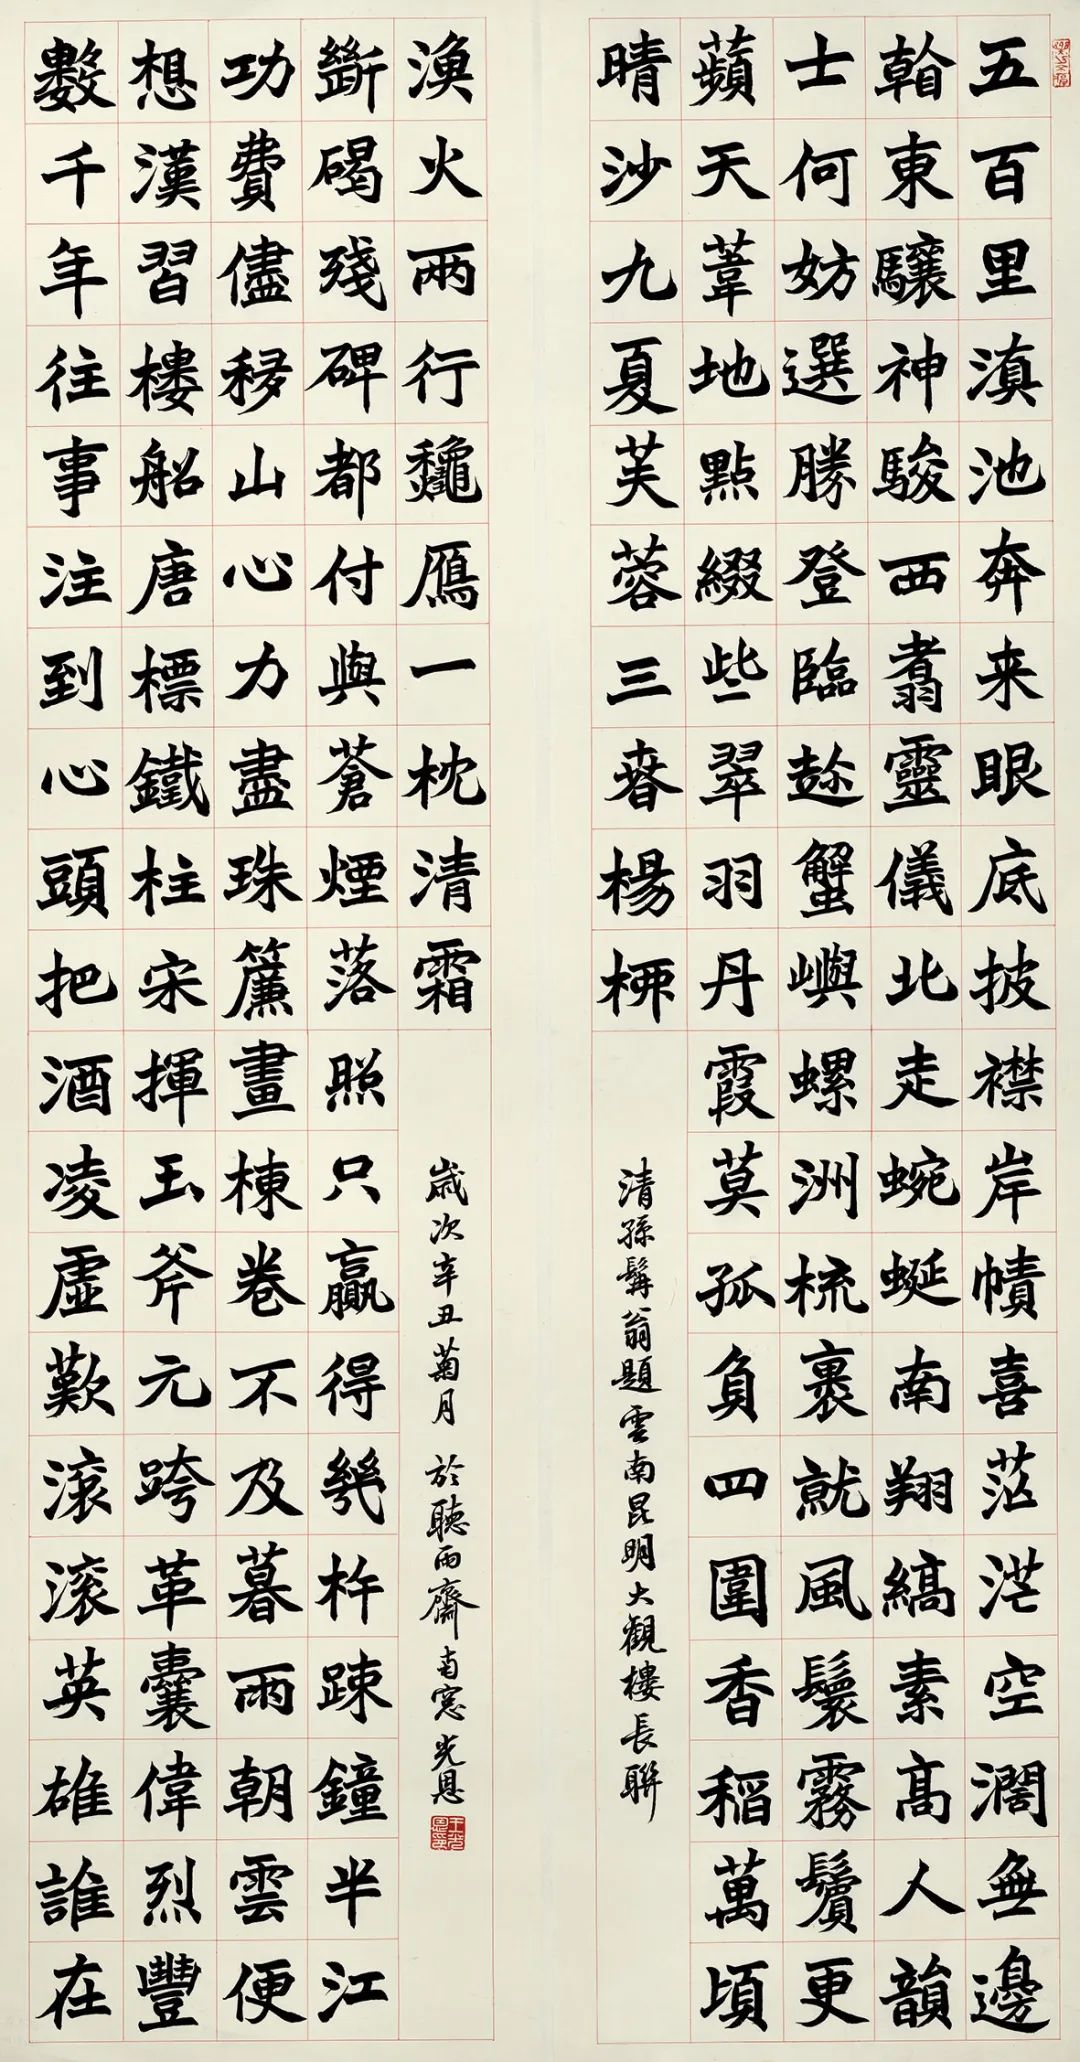 五百里滇池奔来眼底披襟岸幘喜茫茫空濶無邊
看東驤神駿西翥靈儀北走蜿蜒南翔縞素高人韻
士何妨選勝登臨趂蟹嶼螺洲梳裹就風鬟霧鬢更
蘋天葦地點綴些翠羽丹霞莫孤負四圍香稻萬頃
晴沙九夏芙蓉三春楊柳
清孫髯翁題雲南昆明大觀樓長聯
數千年往事注到心頭把酒凌虛歎滚滚英雄誰在
想漢習樓船唐標鐵柱宋揮玉斧元跨革囊偉烈豐
功費儘移山心力盡珠簾畫棟卷不及暮雨朝雲便
斷碣殘碑都付與蒼煙落照只贏得幾杵疎鐘半江
漁火兩行龝雁一枕清霜
歲次辛丑菊月 於聽雨齋南窓光恩
王光恩印